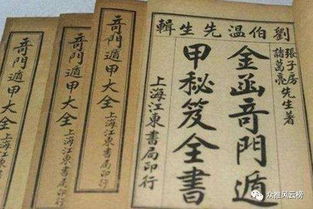 劉伯温先生輯
張子房
諸葛亮
先生著
金函奇門遁
甲秘笈全書
上海江東書局印行
奇門遁甲大全
上海江東書局印行
奇門遁甲大全
上海江東書局印行
奇門遁甲大全
上海江東書局印行
众推风云榜